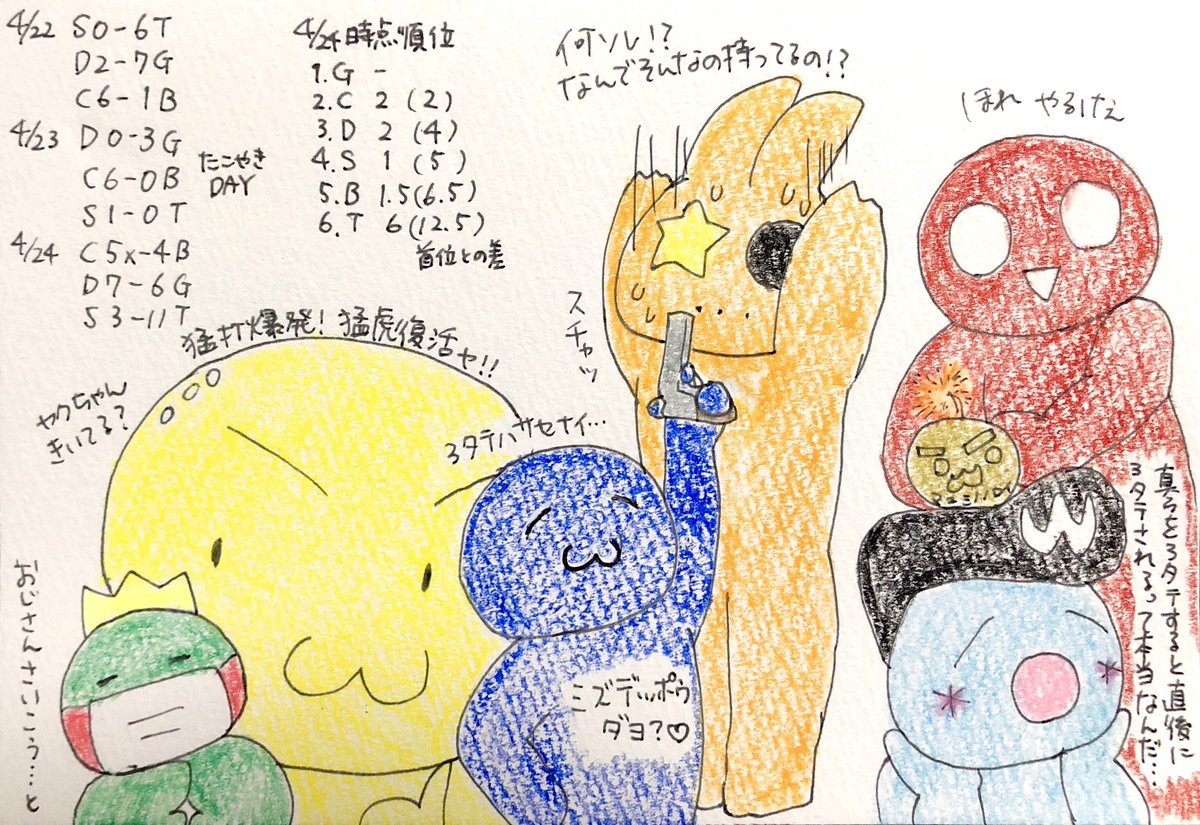 4/22 S0-6T
D2-7G
C6-1B
4/23 D0-3G
C6-0B
S1-0T
たこやき
DAY
4/24 C5x-4B
D7-6G
S3-11T
4/24時点順位
1.G -
2.C 2 (2)
3.D 2 (4)
4.S 1 (5)
5.B 1.5(6.5)
6.T 6(12.5)
首位との差
何ソレ!?
なんでそんなの持ってるの!?
ほれ やるけぇ
スチャッ
猛打爆発!猛虎復活ヤ!!
ヤクちゃん
きいてる?
3タテハサセナイ…
ミズデッポウ
ダヨ?♡
おじさんさいこう…と
真っ赤を3タテすると直後に
3タテされるって本当なんだ…
W